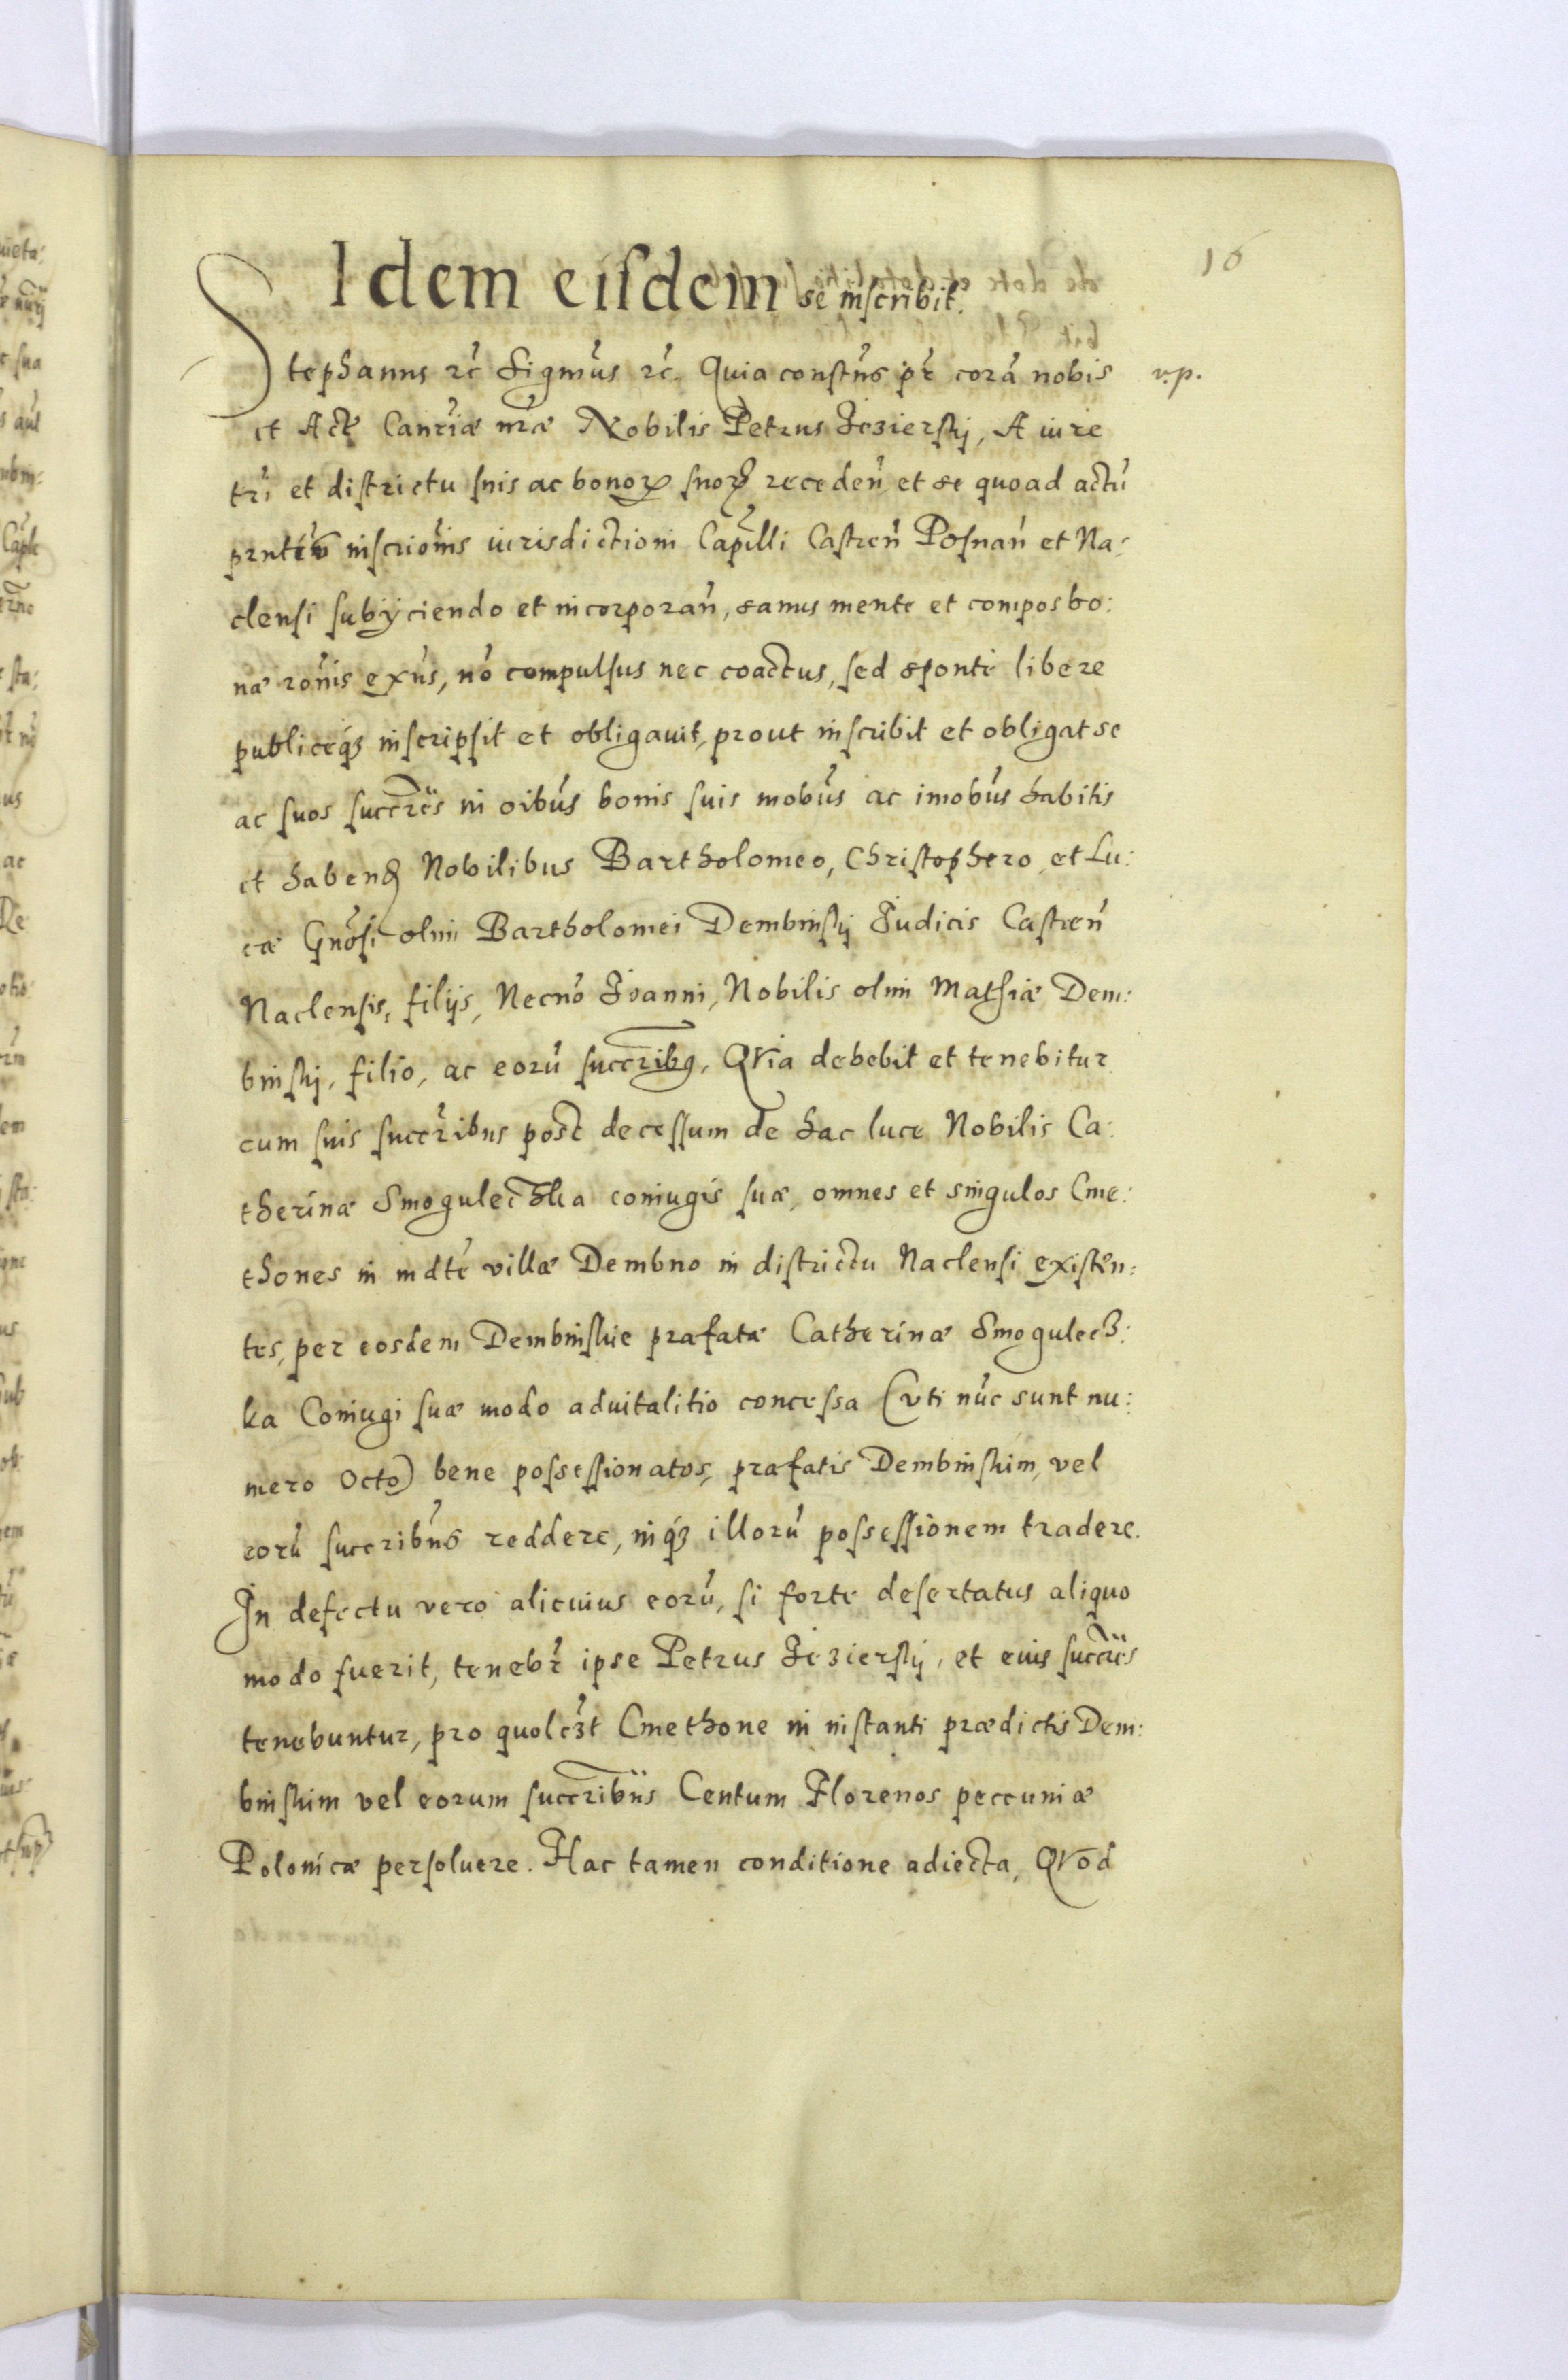 16
Idem eisdem se inscribit.
Stephanus rc̃ Sigmũs rc̃. Quia constñs pr̃ corã nobis v.p.
et Actę Canriæ nræ Nobilis Petrus Jezierskj, A iure
tri et districtu suis ac bonoꝝ suoꝝ receden̄ et se quoad actũ
inscriõnis iurisdictioni Capitlli Castren̄ Posnan̄ et Na:
clensi subÿciendo et incorporan̄, sanus mente et compos bo:
næ rõnis exñs, nõ compulsus nec coactus, sed sponte libere
publiceqꝫ inscripsit et obligauit, prout inscribit et obligat se
ac suos succr̃es in oibũs bonis suis mobũs ac imobũs habitis
et habenꝭ Nobilibus Bartholomeo, Christophero, et Lu:
cæ Gñosi olim Bartholomei Dembinskj Judicis Castren̄
Naclensis, filijs, Necnõ Joanni, Nobilis olim Mathiæ Dem:
binskj, filio, ac eorũ succr̃ibꝫ, QVia debebit et tenebitur
cum suis succr̃ibus post decessum de hac luce Nobilis Ca:
therinæ Smogulechka coniugis suæ, omnes et singulos Cme:
thones in medtẽ villæ Dembno in districtu Naclensi existen:
tes, per eosdem Dembinskie præfatæ Catherinæ Smogulecz:
ka Coniugi suæ modo aduitalitio concessa (vti nũc sunt nu:
mero Octo) bene possessionatos, præfatis Dembinskim, vel
eorũ succribũs reddere, inqꝫ illorũ possessionem tradere.
In defectu vero alicuius eorũ, si forte desertatus aliquo
modo fuerit, tenebr̃ ipse Petrus Jezierskj, et eius succr̃es
tenebuntur, pro quolczt Cmethone in instanti prædictis Dem:
binskim vel eorum succr̃ibus Centum Florenos peccuniæ
Polonicæ persoluere. Hac tamen conditione adiecta, QVod